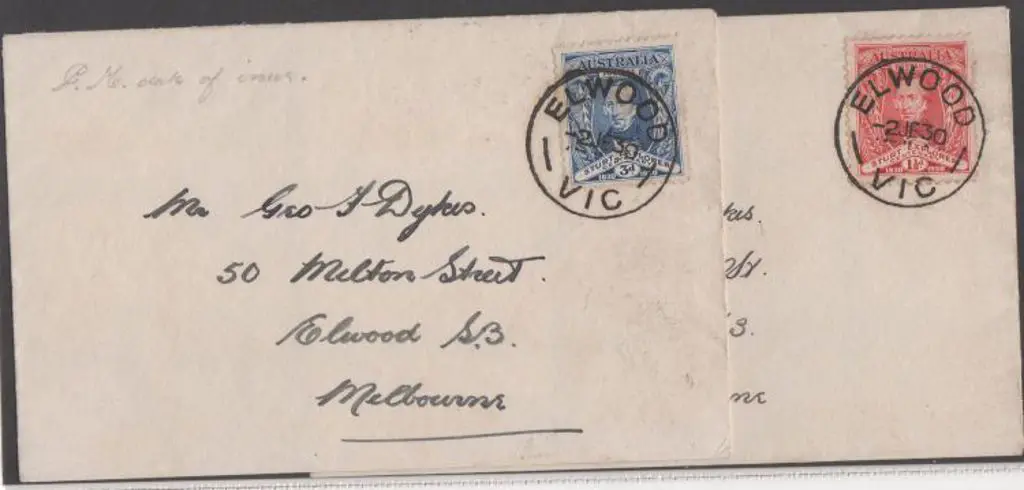 P.M. date of issue.
AUSTRALIA
ELWOOD
-2JE30
VIC
STURT EXPLORER
1830 1930
3d
Mr Geo F Dykes.
50 Milton Street.
Elwood S.3.
Melbourne
AUSTRALIA
ELWOOD
-2JE30
VIC
STURT EXPLORER
1830 1930
1½d
kes.
St.
3.
ne